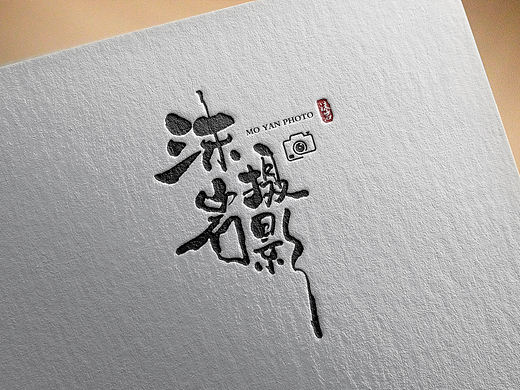 沫岩
MO YAN PHOTO
摄影